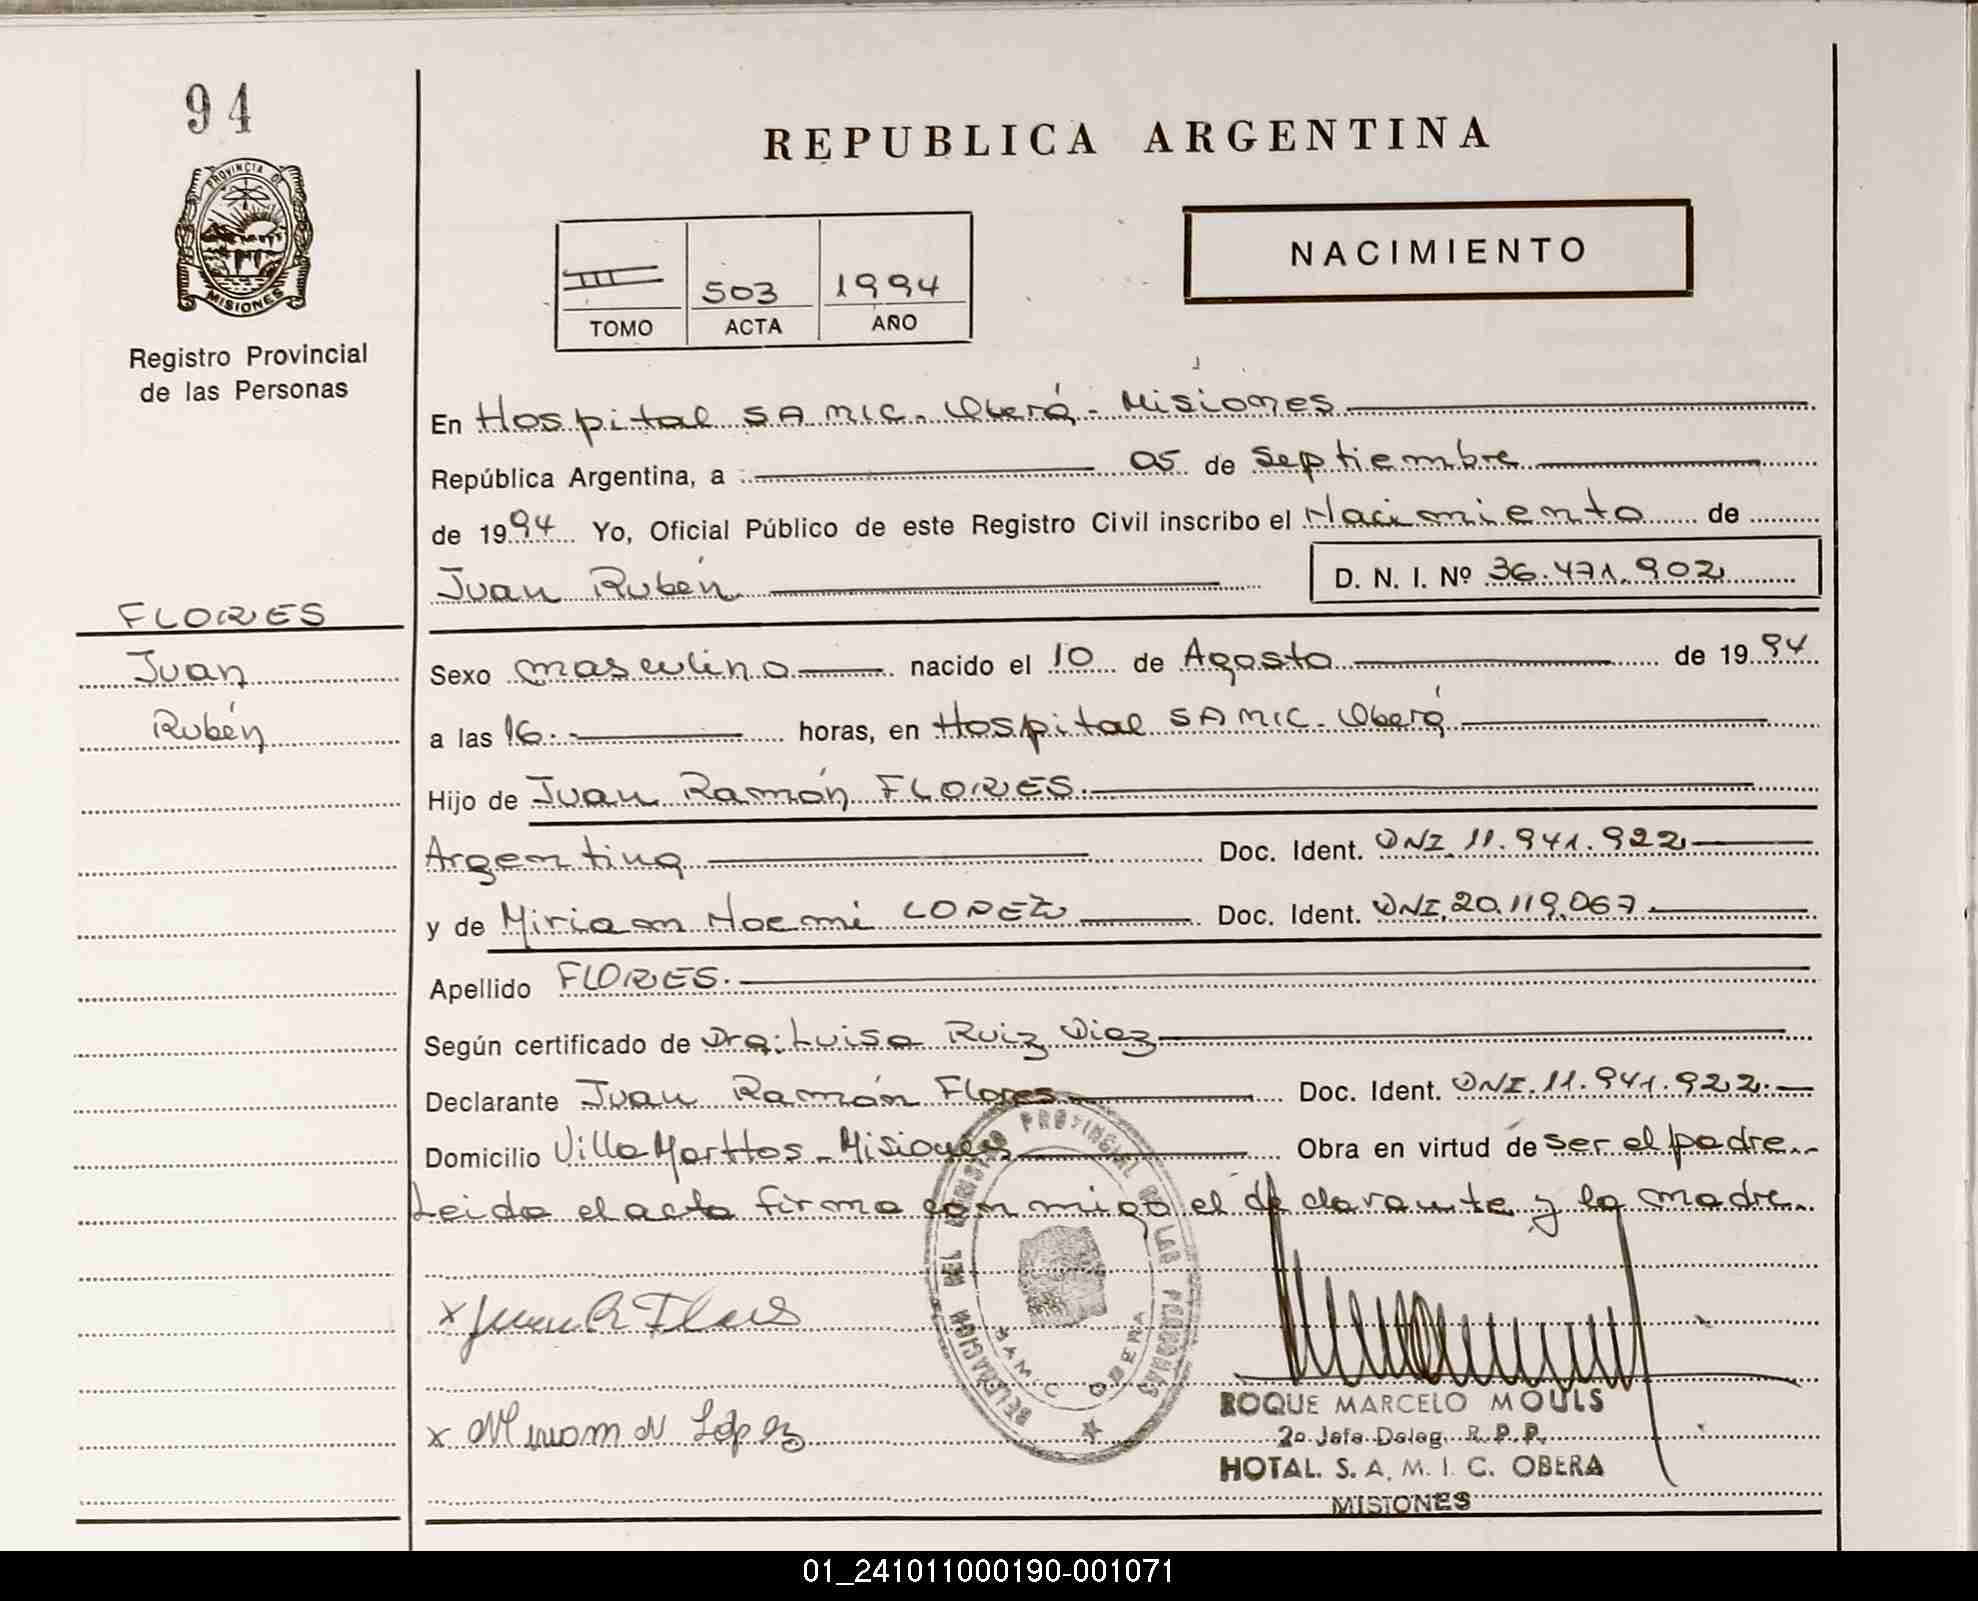 94
PROVINCIA DE
MISIONES
Registro Provincial
de las Personas
FLORES
Juan
Rubén
REPUBLICA ARGENTINA
NACIMIENTO
III 503 1994
TOMO ACTA AÑO
En Hospital SAMIC. Oberá - Misiones
República Argentina, a 05 de Septiembre
de 1994 Yo, Oficial Público de este Registro Civil inscribo el Nacimiento de
Juan Rubén D. N. I. Nº 36.471.902
Sexo masculino nacido el 10 de Agosto de 1994
a las 16.- horas, en Hospital SAMIC. Oberá
Hijo de Juan Ramón FLORES.
Argentina Doc. Ident. DNI. 11.941.922
y de Miriam Noemi LOPEZ Doc. Ident. DNI. 20.119.067
Apellido FLORES.
Según certificado de Dra: Luisa Ruiz Diez
Declarante Juan Ramón Flores Doc. Ident. DNI. 11.941.922.
Domicilio Villa Morttos - Misiones Obra en virtud de ser el padre.
Leida el acta firma conmigo el declarante y la madre.
DELEGACION DEL REGISTRO PROVINCIAL DE LAS PERSONAS
SAMIC OBERA
x Juan R Flores
x Miriam N López
ROQUE MARCELO MOULS
2º Jefe Deleg. R. P. P.
HOTAL. S. A. M. I. C. OBERA
MISIONES
01_241011000190-001071